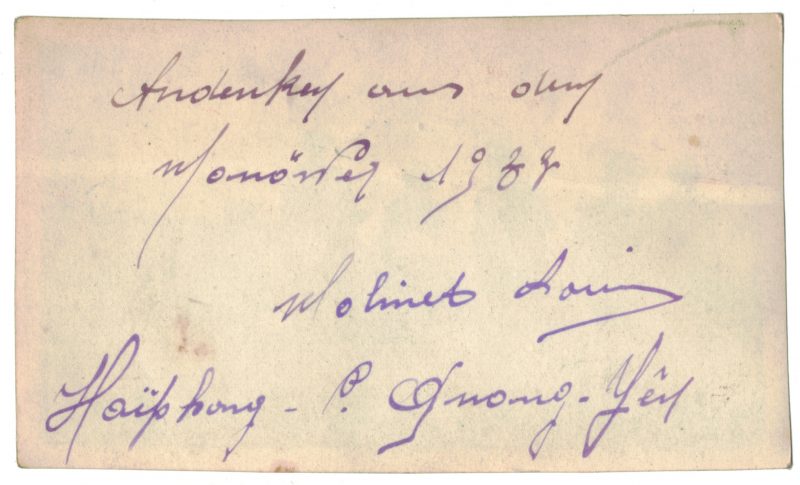 Andenken aus den
Manöver
Molinet Louis
Haïphong - Quang-Yên